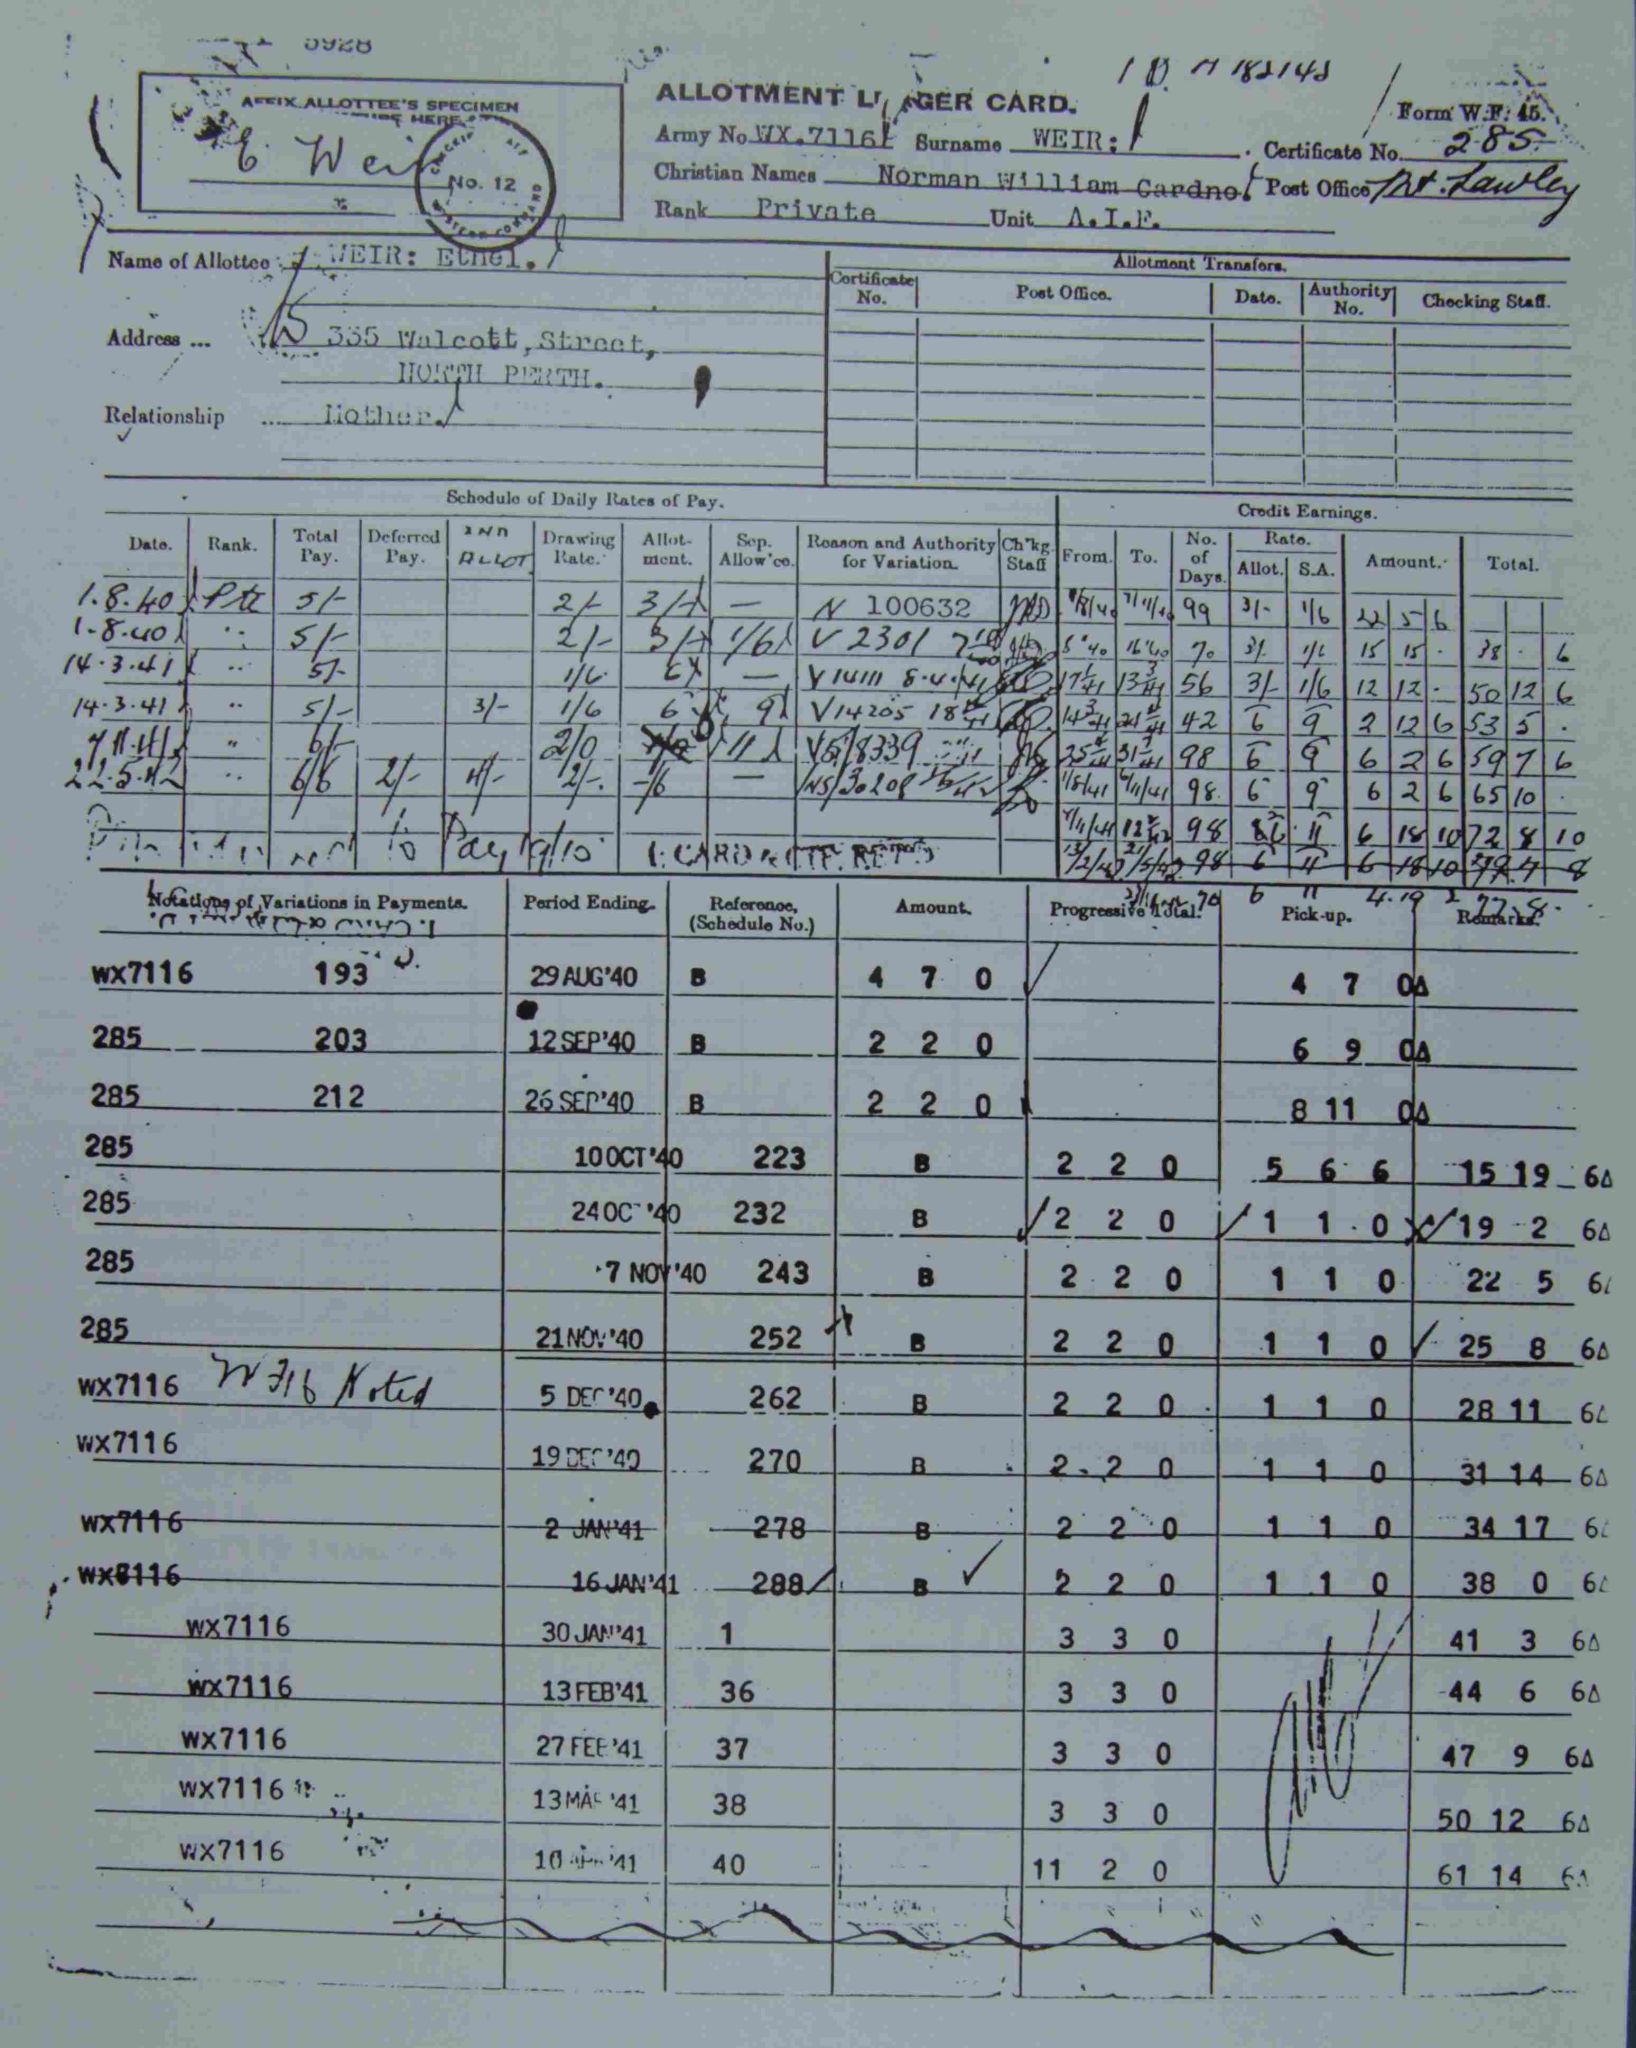 5928
1 D. A 182142
AFFIX ALLOTTEE'S SPECIMEN
HERE
E Weir
No. 12
WESTERN COMMAND
ALLOTMENT LEDGER CARD.
Form W.F. 45.
Army No. WX.7116 Surname WEIR: Certificate No. 285
Christian Names Norman William Cardno Post Office Mt. Lawley
Rank Private Unit A.I.F.
Name of Allottee WEIR: Ethel.
Allotment Transfers.
Certificate No. Post Office. Date. Authority No. Checking Staff.
Address ... 335 Walcott, Street,
NORTH PERTH.
Relationship ... Mother.
Schedule of Daily Rates of Pay. Credit Earnings.
Date. Rank. Total Pay. Deferred Pay. 2ND ALLOT Drawing Rate. Allot-ment. Sep. Allow'ce. Reason and Authority for Variation. Ch'kg. Staff From. To. No. of Days. Rate. Allot. S.A. Amount. Total.
1.8.40 Pte 5/- 2/- 3/- — N 100632 99 3/- 1/6 22 5 6
1.8.40 " 5/- 2/- 3/- 1/6 V 2301 70 3/- 1/6 15 15 . 38 . 6
14.3.41 " 5/- 1/6 — V 14111 8.4.41 56 3/- 1/6 12 12 - 50 12 6
14.3.41 " 5/- 3/- 1/6 6 9 V14205 42 6 9 2 12 6 53 5 .
7.11.41 " 6/- 2/0 11 V5/8339 98 6 9 6 2 6 59 7 6
22.5.42 " 6/6 2/- 4/- 2/- -/6 — 1/8/41 98 6 9 6 2 6 65 10 .
98 6 11 6 18 10 72 8 10
to Pay 98 6 11 6 18 10 79 7 8
70 6 11 4.19 2
Notations of Variations in Payments. Period Ending. Reference, (Schedule No.) Amount. Progressive Total. Pick-up. Remarks.
WX7116 193 29 AUG'40 B 4 7 0 4 7 0Δ
285 203 12 SEP'40 B 2 2 0 6 9 0Δ
285 212 26 SEP'40 B 2 2 0 8 11 0Δ
285 10 OCT'40 223 B 2 2 0 5 6 6 15 19 6Δ
285 24 OCT'40 232 B 2 2 0 1 1 0 19 2 6Δ
285 7 NOV'40 243 B 2 2 0 1 1 0 22 5 6Δ
285 21 NOV'40 252 B 2 2 0 1 1 0 25 8 6Δ
WX7116 WF16 Noted 5 DEC'40 262 B 2 2 0 1 1 0 28 11 6Δ
WX7116 19 DEC'40 270 B 2 2 0 1 1 0 31 14 6Δ
WX7116 2 JAN'41 278 B 2 2 0 1 1 0 34 17 6Δ
WX8116 16 JAN'41 288 B 2 2 0 1 1 0 38 0 6Δ
WX7116 30 JAN'41 1 3 3 0 41 3 6Δ
WX7116 13 FEB'41 36 3 3 0 44 6 6Δ
WX7116 27 FEB'41 37 3 3 0 47 9 6Δ
WX7116 13 MAR'41 38 3 3 0 50 12 6Δ
WX7116 10 APR'41 40 11 2 0 61 14 6Δ